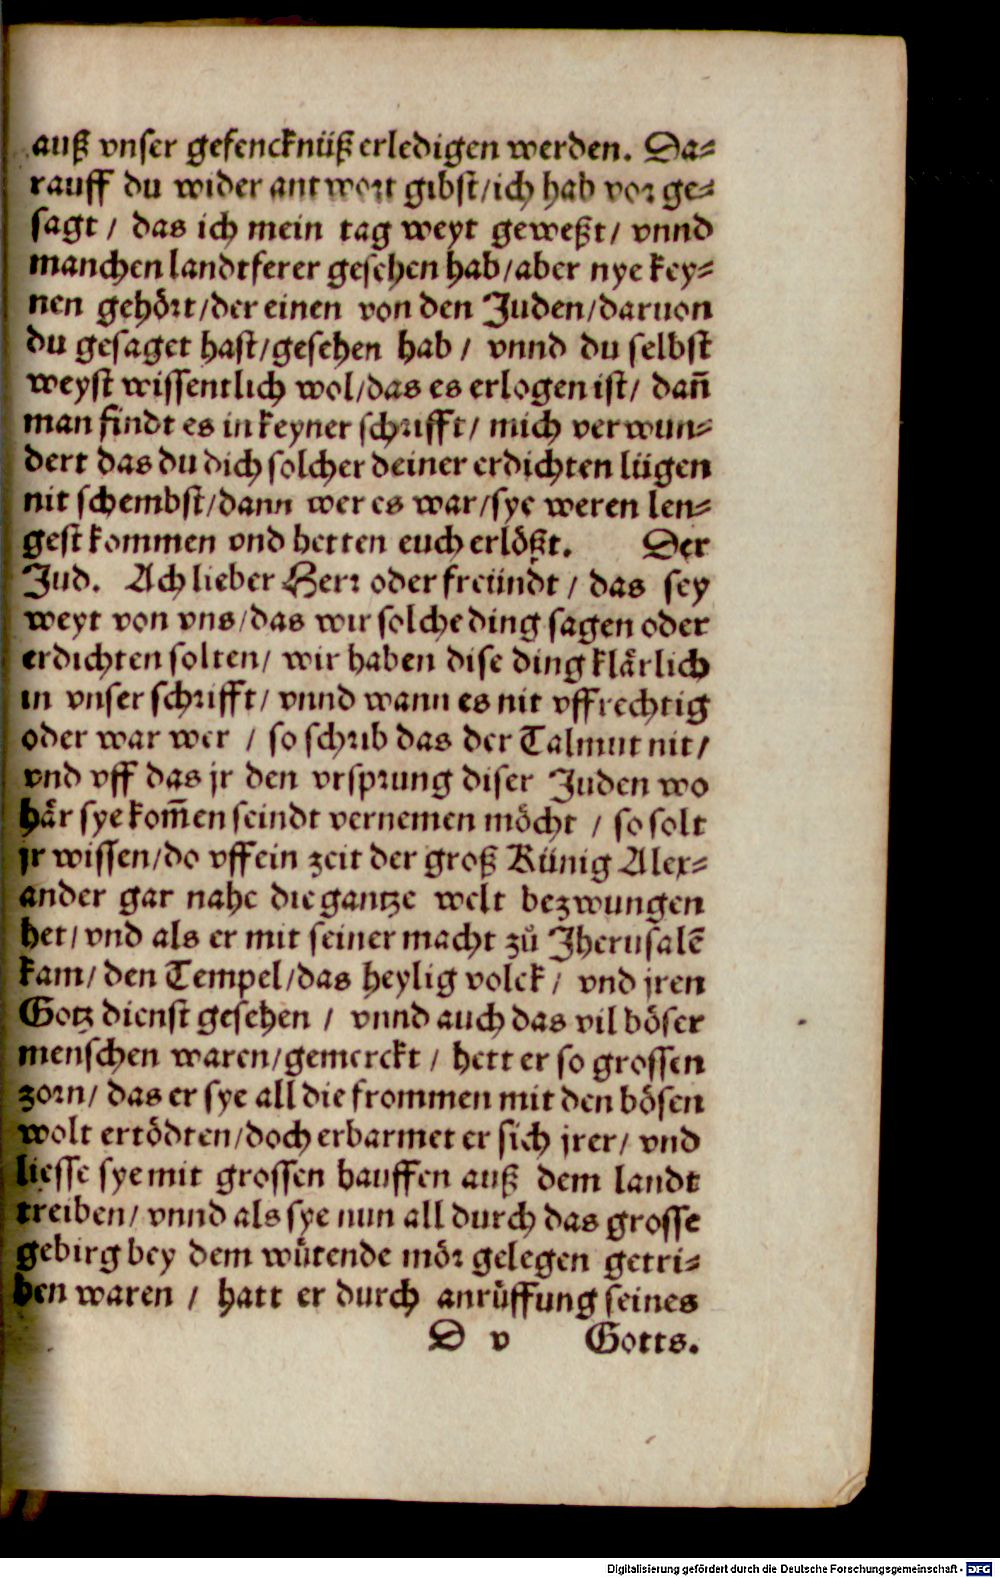 auß vnser gefencknüß erledigen werden. Da⸗
rauff du wider antwort gibst/ich hab vor ge⸗
sagt / das ich mein tag weyt geweßt/ vnnd
manchen landtferer gesehen hab/aber nye key⸗
nen gehört/der einen von den Juden/daruon
du gesaget hast/gesehen hab / vnnd du selbst
weyst wissentlich wol/das es erlogen ist/ dan̄
man findt es in keyner schrifft/ mich verwun⸗
dert das du dich solcher deiner erdichten lügen
nit schembst/dann wer es war/sye weren len⸗
gest kommen vnd hetten euch erlößt. Der
Jud. Ach lieber Herr oder freündt / das sey
weyt von vns/das wir solche ding sagen oder
erdichten solten/ wir haben dise ding klårlich
in vnser schrifft/ vnnd wann es nit vffrechtig
oder war wer / so schrib das der Talmut nit/
vnd vff das jr den vrsprung diser Juden wo
hår sye kom̄en seindt vernemen möcht / so solt
jr wissen/do vff ein zeit der groß Künig Alex⸗
ander gar nahe die gantze welt bezwungen
het/ vnd als er mit seiner macht zů Jherusalē
kam/ den Tempel/das heylig volck / vnd jren
Gotz dienst gesehen / vnnd auch das vil böser
menschen waren/gemerckt / hett er so grossen
zorn/ das er sye all die frommen mit den bösen
wolt ertödten/doch erbarmet er sich jrer/ vnd
liesse sye mit grossen hauffen auß dem landt
treiben/ vnnd als sye nun all durch das grosse
gebirg bey dem wütende mör gelegen getri⸗
ben waren / hatt er durch anrüffung seines
D v Gotts.
Digitalisierung gefördert durch die Deutsche Forschungsgemeinschaft - DFG